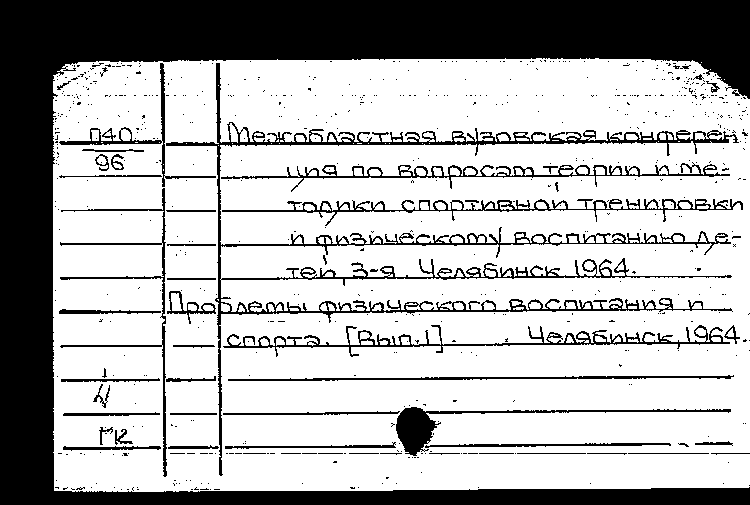 П40
96
Межобластная вузовская конферен-
ция по вопросам теории и ме-
тодики спортивной тренировки
и физическому воспитанию де-
тей, 3-я. Челябинск 1964.
Проблемы физического воспитания и
спорта. [Вып.1]. Челябинск, 1964.
ГК